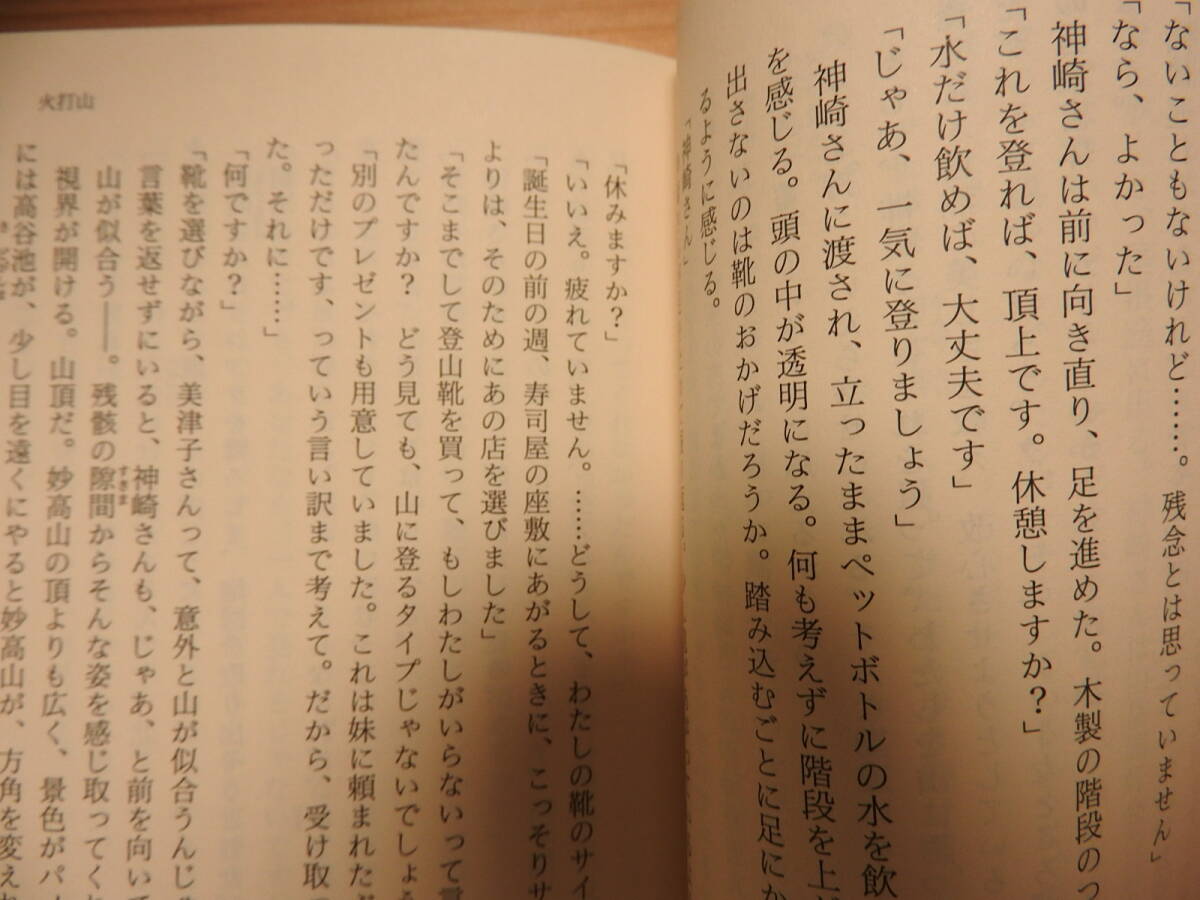 「ないこともないけれど……。残念とは思っていません」
「なら、よかった」
神崎さんは前に向き直り、足を進めた。木製の階段のつ
「これを登れば、頂上です。休憩しますか？」
「水だけ飲めば、大丈夫です」
「じゃあ、一気に登りましょう」
神崎さんに渡され、立ったままペットボトルの水を飲
を感じる。頭の中が透明になる。何も考えずに階段を上が
出さないのは靴のおかげだろうか。踏み込むごとに足にか
るように感じる。
「神崎さん」
火打山
「休みますか？」
「いいえ。疲れていません。……どうして、わたしの靴のサイ
「誕生日の前の週、寿司屋の座敷にあがるときに、こっそりサ
よりは、そのためにあの店を選びました」
「そこまでして登山靴を買って、もしわたしがいらないって言
たんですか？　どう見ても、山に登るタイプじゃないでしょう
「別のプレゼントも用意していました。これは妹に頼まれた
っただけです、っていう言い訳まで考えて。だから、受け取
た。それに……」
「何ですか？」
「靴を選びながら、美津子さんって、意外と山が似合うんじゃ
言葉を返せずにいると、神崎さんも、じゃあ、と前を向いて
山が似合う――。残骸の隙間からそんな姿を感じ取ってくれ
すきま
視界が開ける。山頂だ。妙高山の頂よりも広く、景色がパ
には高谷池が、少し目を遠くにやると妙高山が、方角を変え